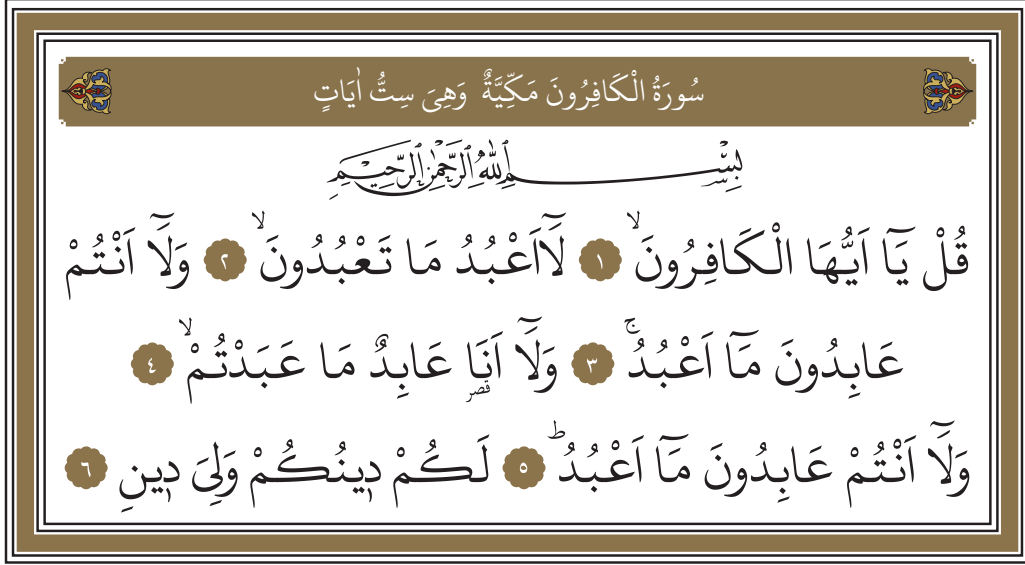 سُورَةُ الْكَافِرُونَ مَكِّيَّةٌ وَهِىَ سِتُّ اٰيَاتٍ
بِسْمِ اللّٰهِ الرَّحْمٰنِ الرَّحِيمِ
قُلْ يَٓا اَيُّهَا الْكَافِرُونَۙ ١ لَٓااَعْبُدُ مَا تَعْبُدُونَۙ ٢ وَلَٓا اَنْتُمْ
عَابِدُونَ مَٓا اَعْبُدُۚ ٣ وَلَٓا اَنَا۬ قصر عَابِدٌ مَا عَبَدْتُمْۙ ٤
وَلَٓا اَنْتُمْ عَابِدُونَ مَٓا اَعْبُدُۜ ٥ لَكُمْ د۪ينُكُمْ وَلِىَ د۪ينِ ٦